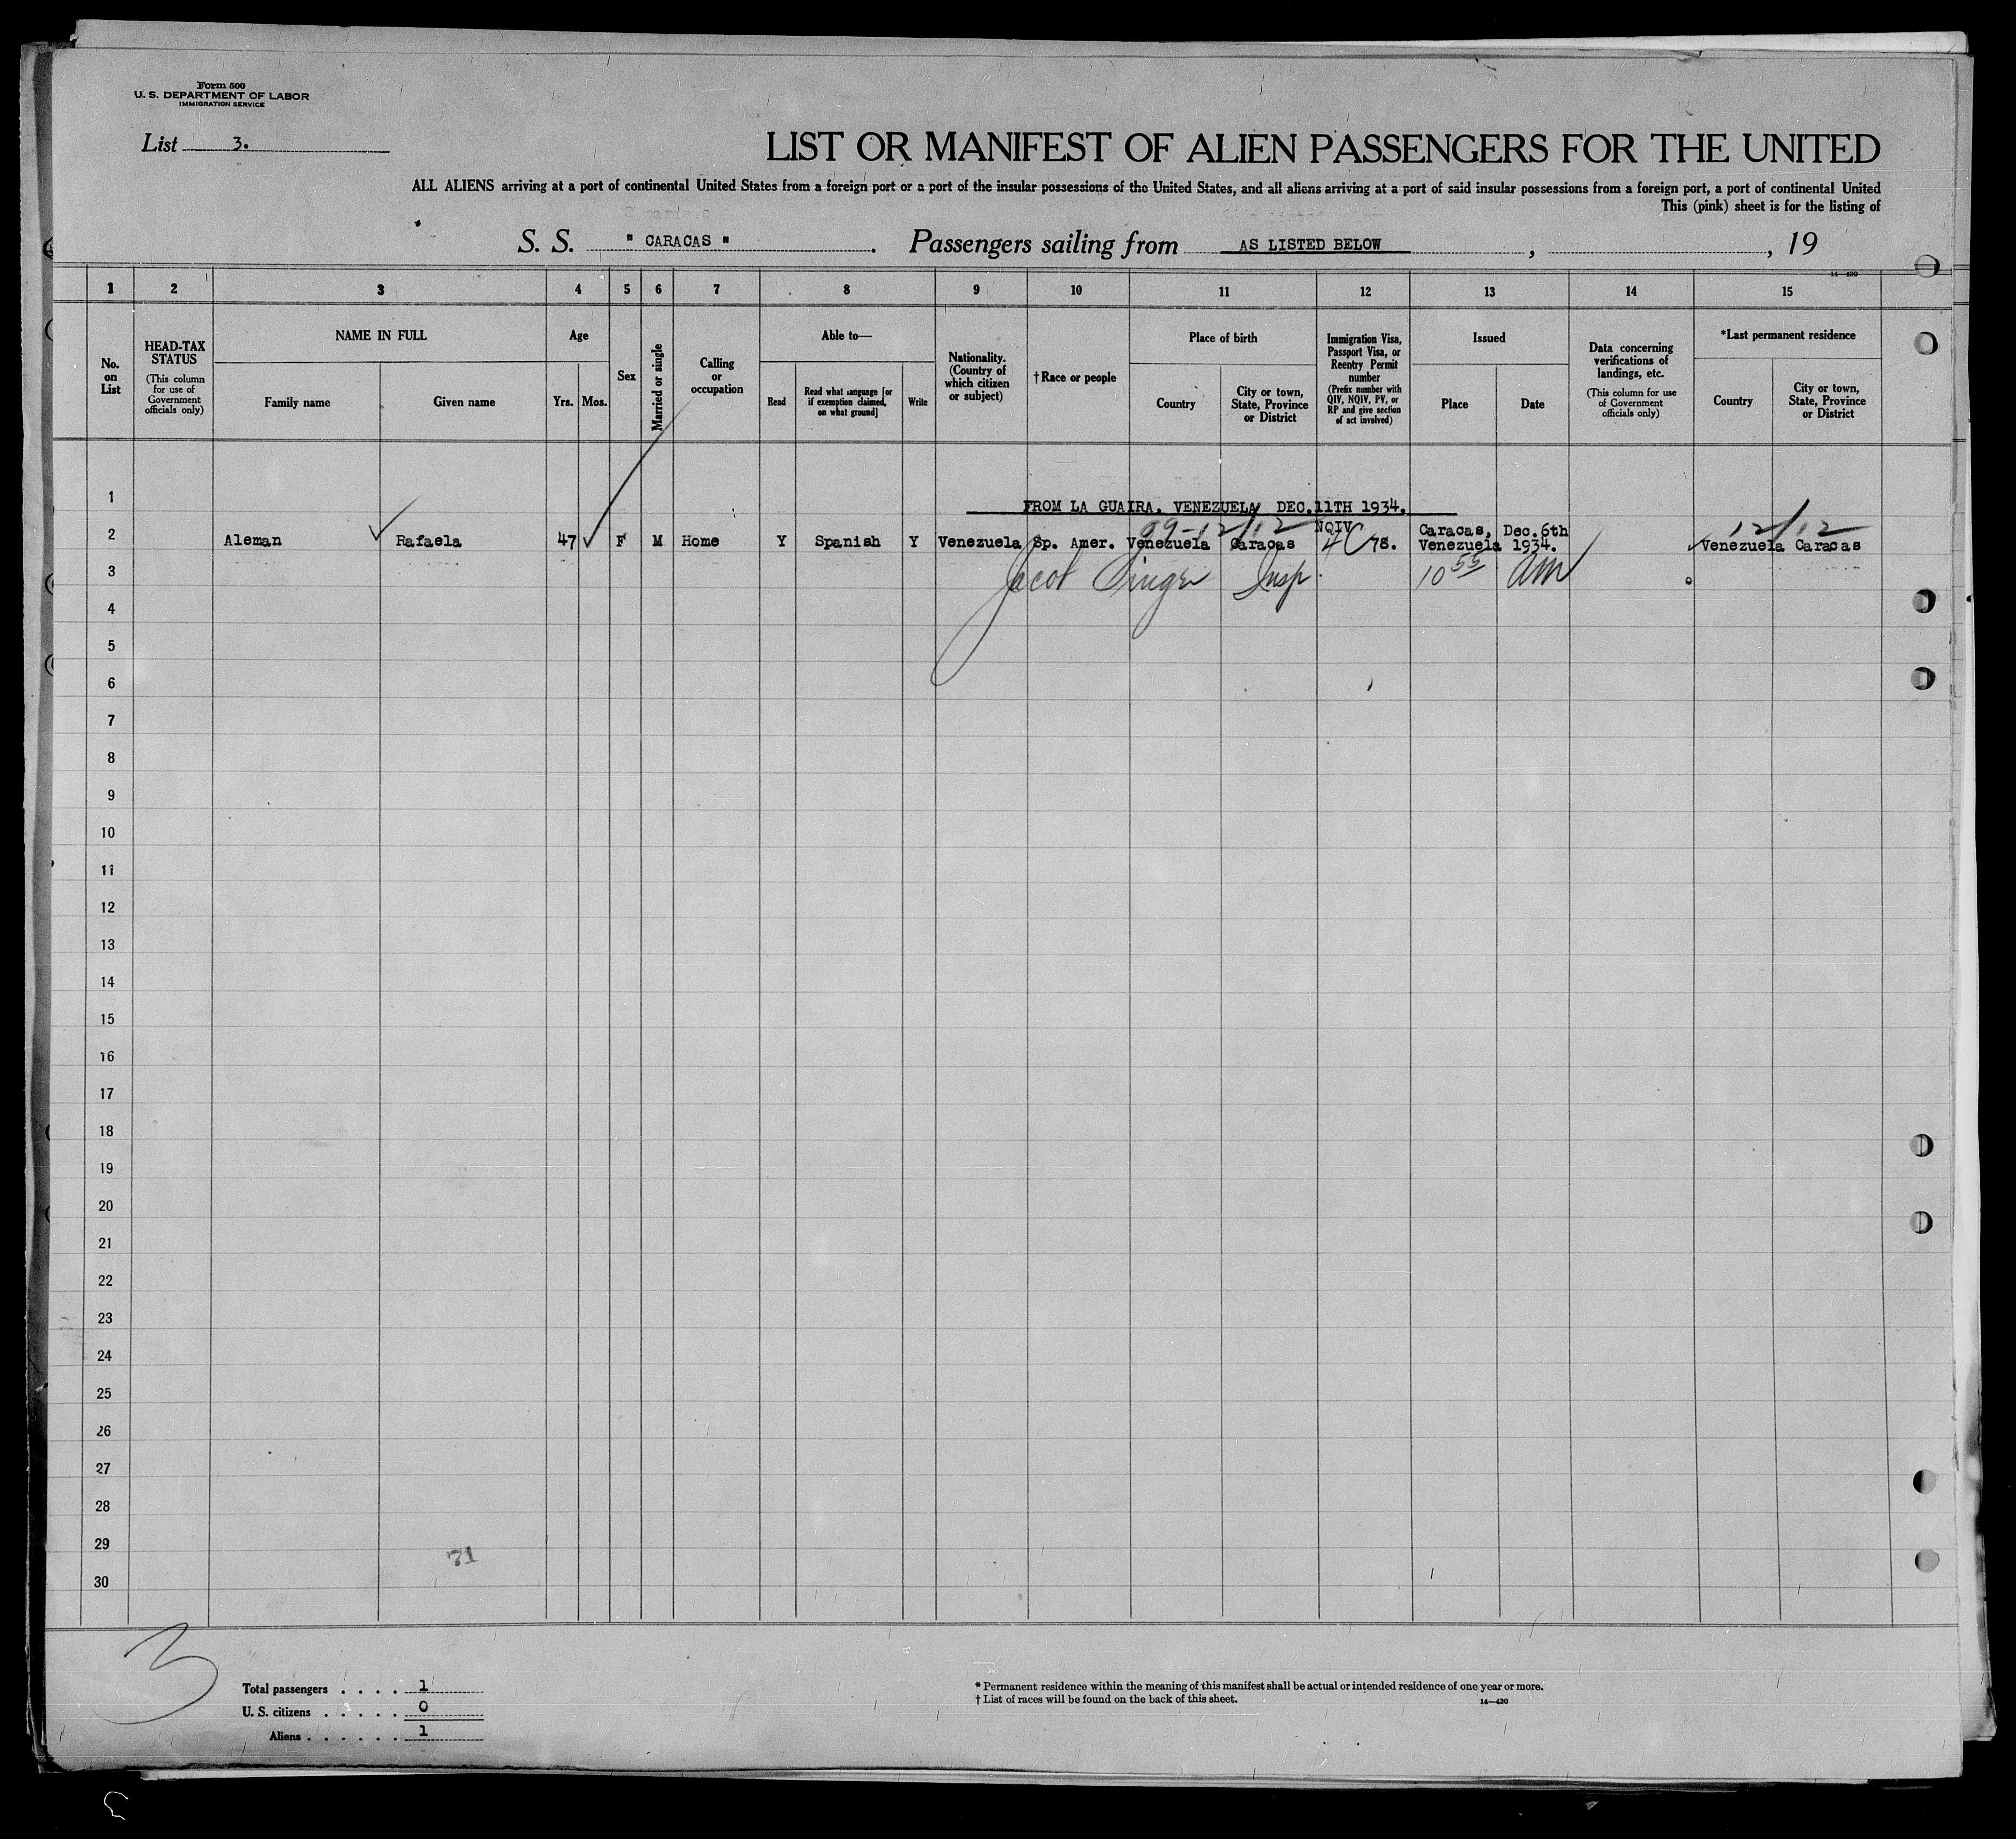 Form 500
U. S. DEPARTMENT OF LABOR
IMMIGRATION SERVICE
List 3.
LIST OR MANIFEST OF ALIEN PASSENGERS FOR THE UNITED
ALL ALIENS arriving at a port of continental United States from a foreign port or a port of the insular possessions of the United States, and all aliens arriving at a port of said insular possessions from a foreign port, a port of continental United
This (pink) sheet is for the listing of
S. S. " CARACAS " . Passengers sailing from AS LISTED BELOW , , 19
14—430
1 2 3 4 5 6 7 8 9 10 11 12 13 14 15
No. on List
HEAD-TAX STATUS
(This column for use of Government officials only)
NAME IN FULL
Family name
Given name
Age
Yrs. Mos.
Sex
Married or single
Calling or occupation
Able to—
Read
Read what language [or if exemption claimed, on what ground]
Write
Nationality. (Country of which citizen or subject)
† Race or people
Place of birth
Country
City or town, State, Province or District
Immigration Visa, Passport Visa, or Reentry Permit number
(Prefix number with QIV, NQIV, PV, or RP and give section of act involved)
Issued
Place
Date
Data concerning verifications of landings, etc.
(This column for use of Government officials only)
*Last permanent residence
Country
City or town, State, Province or District
1
FROM LA GUAIRA, VENEZUELA, DEC.11TH 1934.
99-12/12 NQIV Caracas, Dec.6th 12/12
2 Aleman Rafaela 47 F M Home Y Spanish Y Venezuela Sp. Amer. Venezuela Caracas 4C 78. Venezuela 1934. Venezuela Caracas
3 Jacob Singer Insp. 10 55 AM
4
5
6
7
8
9
10
11
12
13
14
15
16
17
18
19
20
21
22
23
24
25
26
27
28
29
71
30
3
Total passengers . . . . 1
U. S. citizens . . . . . 0
Aliens . . . . . . 1
* Permanent residence within the meaning of this manifest shall be actual or intended residence of one year or more.
† List of races will be found on the back of this sheet. 14—430